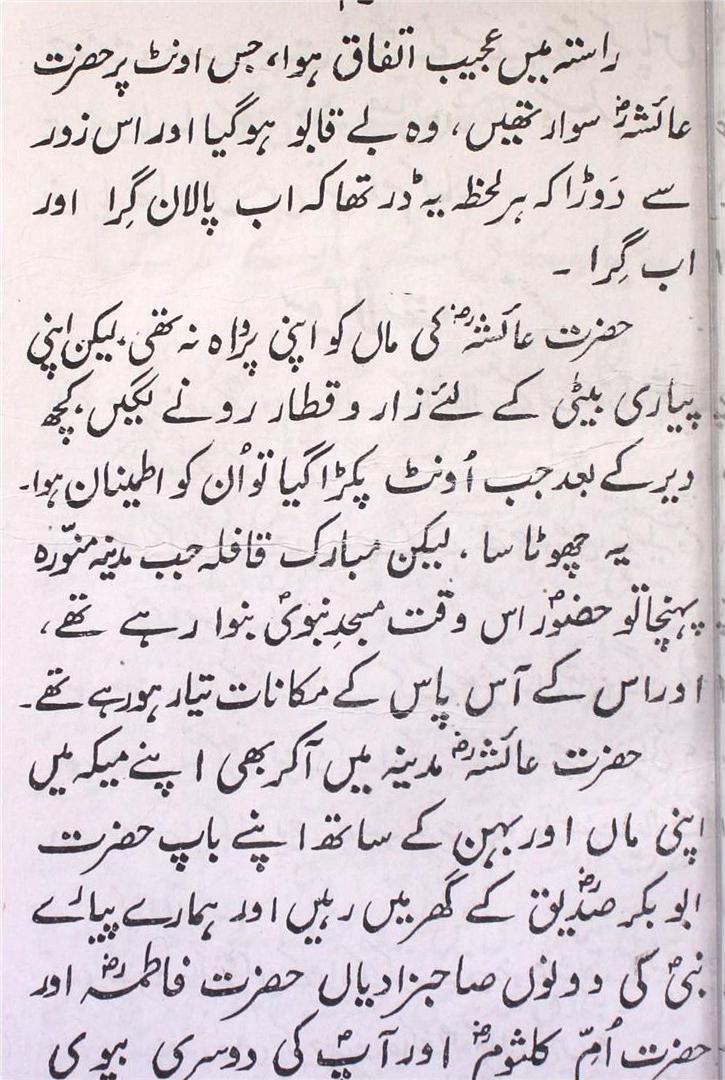 راستہ میں عجیب اتفاق ہوا، جس اونٹ پر حضرت
عائشہؓ سوار تھیں، وہ بے قابو ہو گیا اور اس زور
سے دَوڑا کہ ہر لحظہ یہ ڈر تھا کہ اب پالان گِرا اور
اب گِرا ۔
حضرت عائشہؓ کی ماں کو اپنی پرواہ نہ تھی، لیکن اپنی
پیاری بیٹی کے لئے زار و قطار رونے لگیں، کچھ
دیر کے بعد جب اُونٹ پکڑا گیا تو اُن کو اطمینان ہوا۔
یہ چھوٹا سا، لیکن مبارک قافلہ جب مدینہ منوّرہ
پہنچا تو حضورؐ اس وقت مسجدِ نبویؐ بنوا رہے تھے،
اور اس کے آس پاس کے مکانات تیار ہو رہے تھے۔
حضرت عائشہؓ مدینہ میں آ کر بھی اپنے میکہ میں
اپنی ماں اور بہن کے ساتھ اپنے باپ حضرت
ابو بکر صدّیقؓ کے گھر میں رہیں اور ہمارے پیارے
نبیؐ کی دونوں صاحبزادیاں حضرت فاطمہؓ اور
حضرت اُمّ کلثومؓ اور آپؐ کی دوسری بیوی